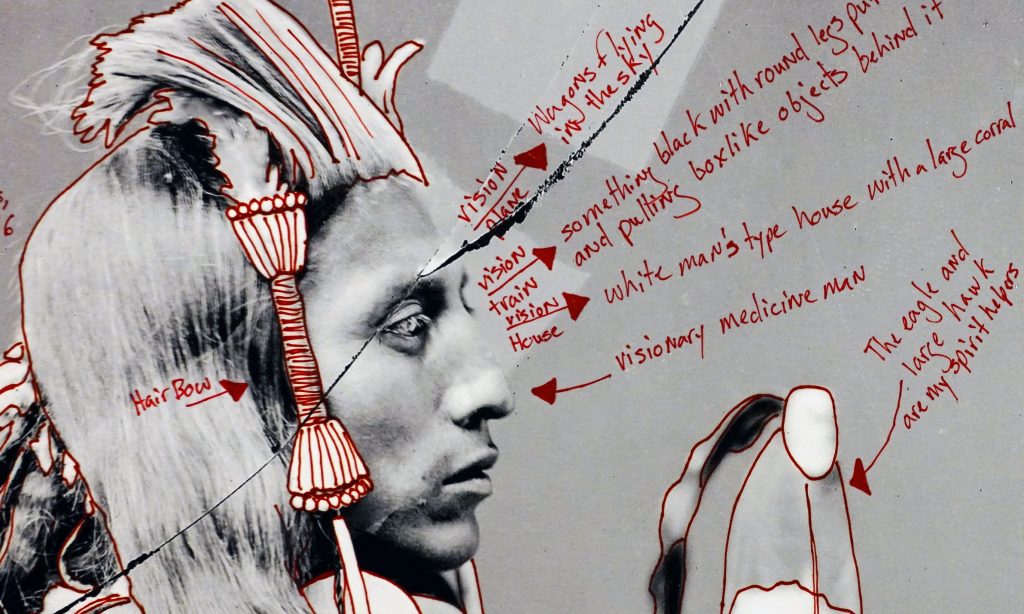 Wagons flying
into the sky
vision
plane
something black with round legs
and pulling boxlike objects behind it
vision
train
white man's type house with a large corral
vision
House
visionary medicine man
Hair Bow
The eagle and
large hawk
are my
spirit helpers
6